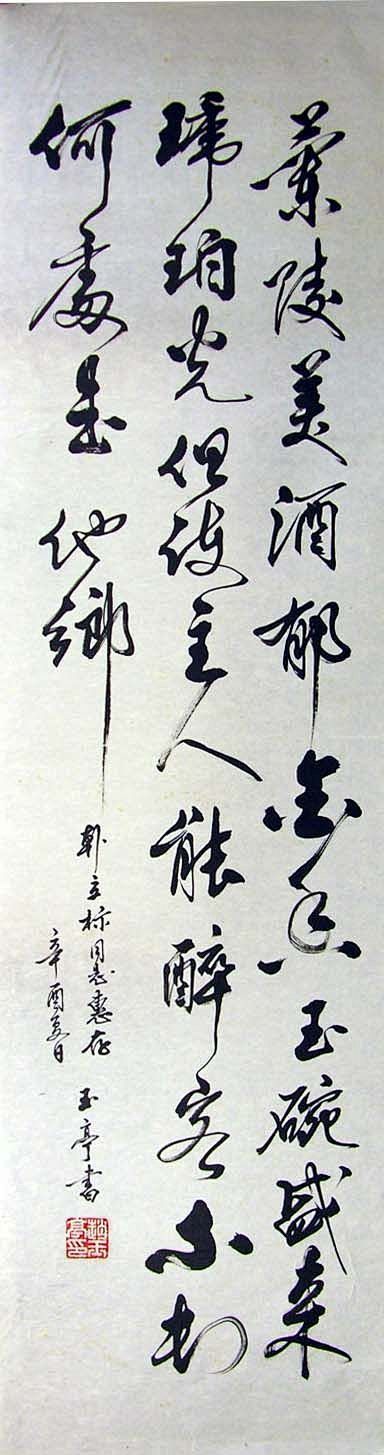 蘭陵美酒郁金香玉碗盛来
琥珀光但使主人能醉客不知
何處是他鄉
立标同志惠存
辛酉夏日
玉亭書
趙玉亭印